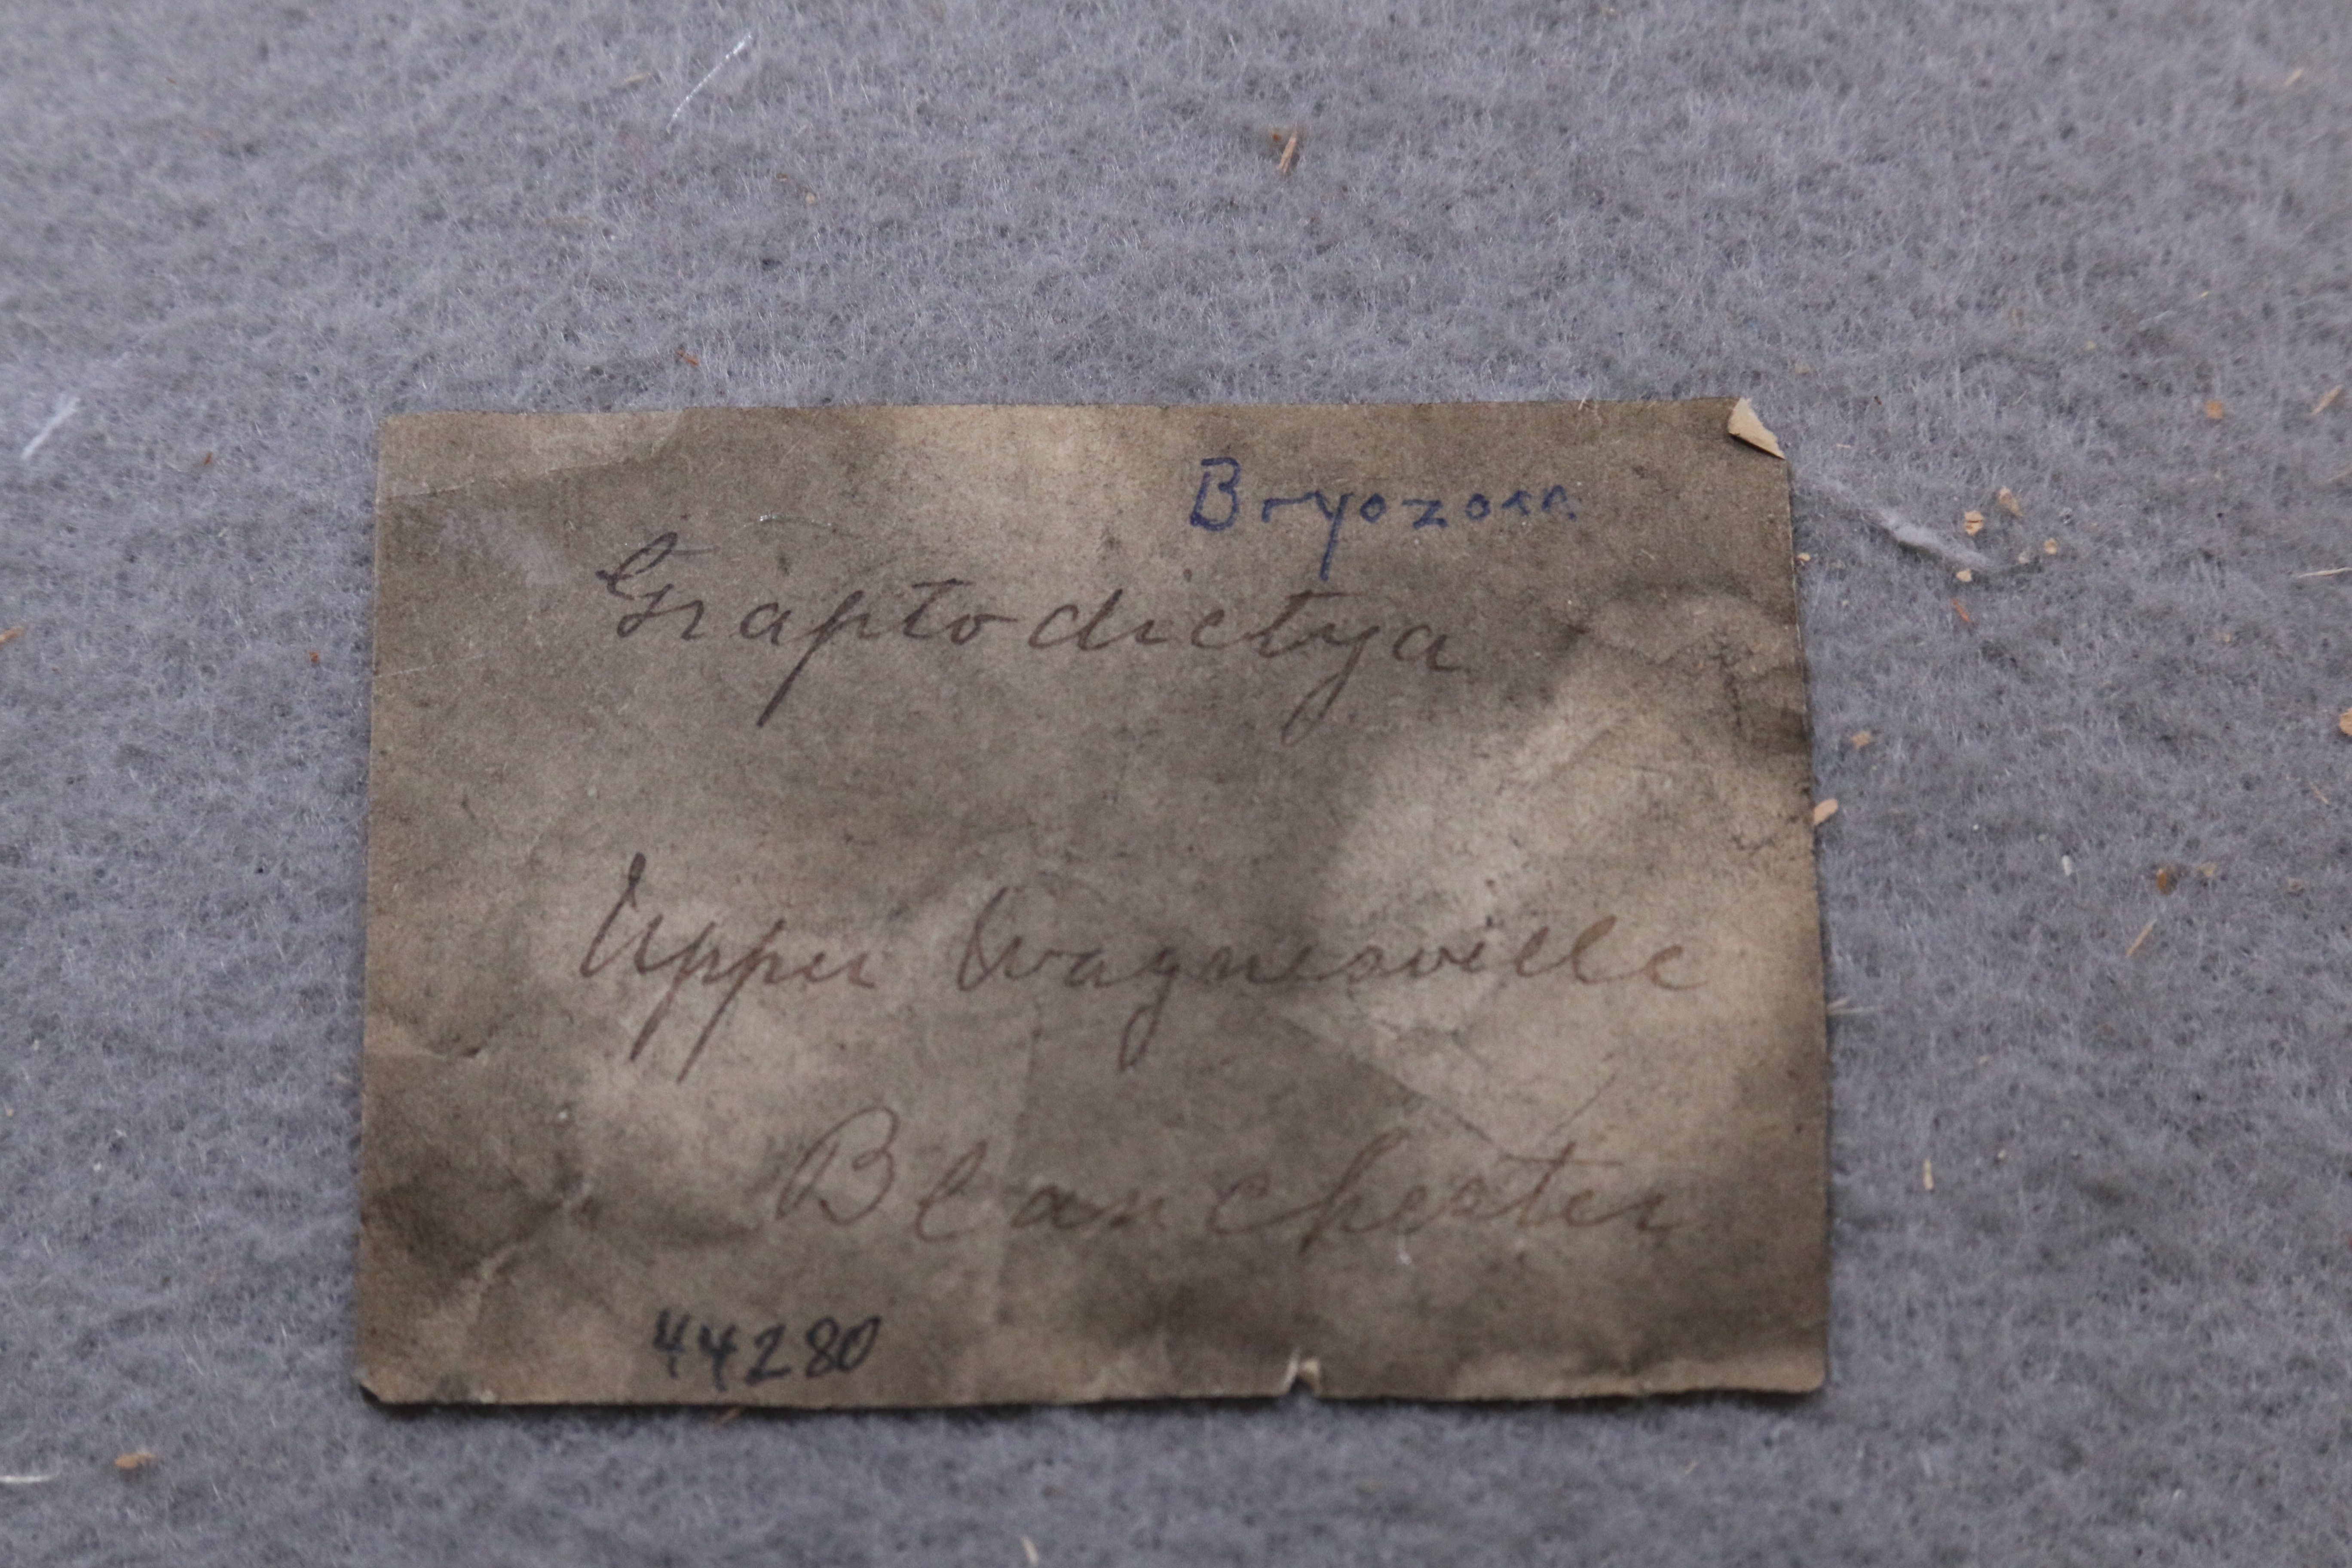 Bryozoan
Graptodictya
Upper Waynesville
Blanchester
44280